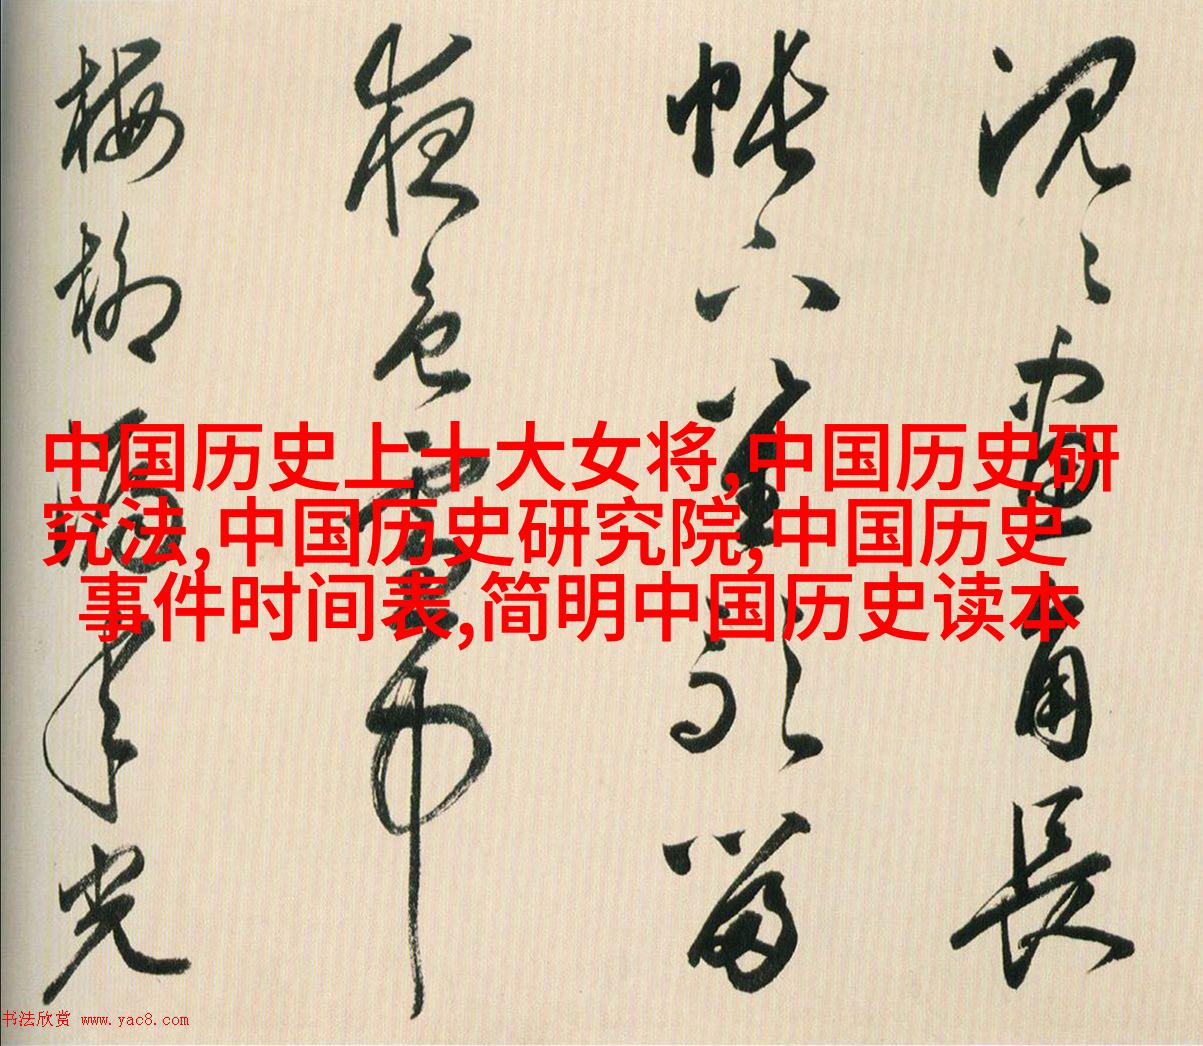 中国历史上十大女将,中国历史研
究法,中国历史研究院,中国历史
事件时间表,简明中国历史读本
沉 畫角長
帐 難 留
夜色
梅柳 年光
书法欣赏 www.yac8.com